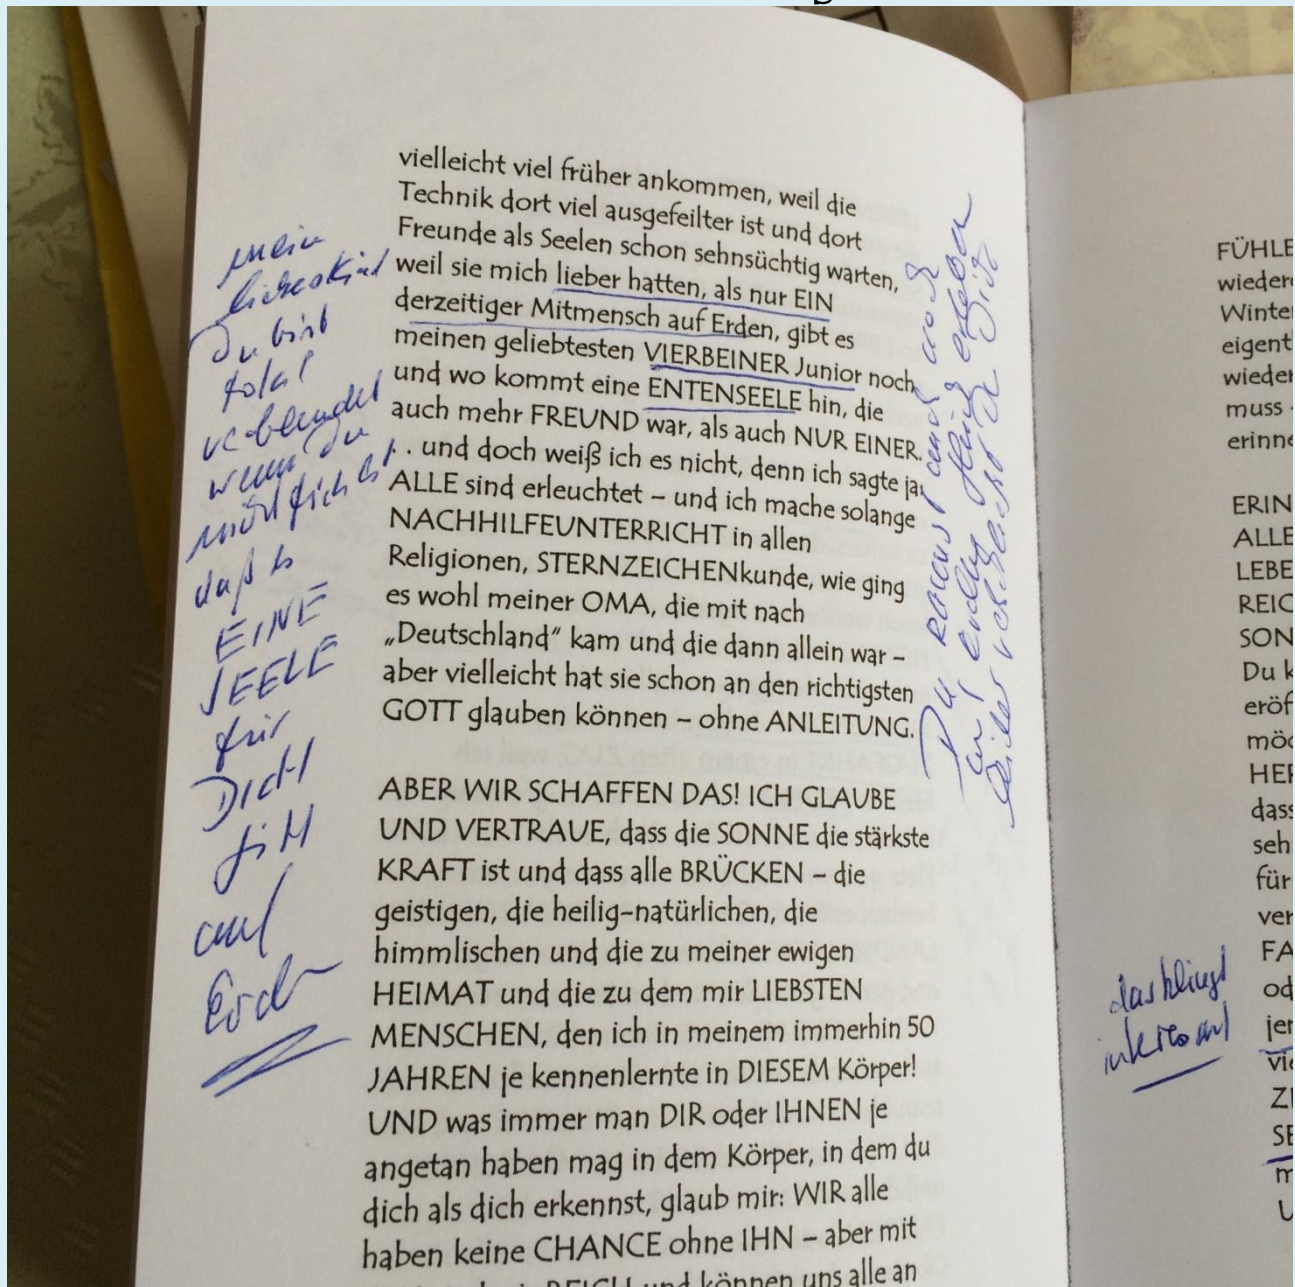 vielleicht viel früher ankommen, weil die
Technik dort viel ausgefeilter ist und dort
Freunde als Seelen schon sehnsüchtig warten,
weil sie mich lieber hatten, als nur EIN
derzeitiger Mitmensch auf Erden, gibt es
meinen geliebtesten VIERBEINER Junior noch
und wo kommt eine ENTENSEELE hin, die
auch mehr FREUND war, als auch NUR EINER.
. . und doch weiß ich es nicht, denn ich sagte ja,
ALLE sind erleuchtet – und ich mache solange
NACHHILFEUNTERRICHT in allen
Religionen, STERNZEICHENkunde, wie ging
es wohl meiner OMA, die mit nach
„Deutschland“ kam und die dann allein war –
aber vielleicht hat sie schon an den richtigsten
GOTT glauben können – ohne ANLEITUNG.
ABER WIR SCHAFFEN DAS! ICH GLAUBE
UND VERTRAUE, dass die SONNE die stärkste
KRAFT ist und dass alle BRÜCKEN – die
geistigen, die heilig-natürlichen, die
himmlischen und die zu meiner ewigen
HEIMAT und die zu dem mir LIEBSTEN
MENSCHEN, den ich in meinem immerhin 50
JAHREN je kennenlernte in DIESEM Körper!
UND was immer man DIR oder IHNEN je
angetan haben mag in dem Körper, in dem du
dich als dich erkennst, glaub mir: WIR alle
haben keine CHANCE ohne IHN – aber mit
REICH und können uns alle an
mein
liebes Kind
Du bist
total
verblendet
wenn Du
nicht siehst
daß es
EINE
SEELE
für
Dich
gibt
auf
Erden
Du kannst auch noch
leider versteckst Dich
das klingt
interessant
FÜHLE
wieder
Winte
eigent
wieder
muss
erinne
ERIN
ALLE
LEBE
REIC
SON
Du k
eröf
möc
HER
dass
seh
für
ver
FA
od
jer
vie
ZI
SE
m
U